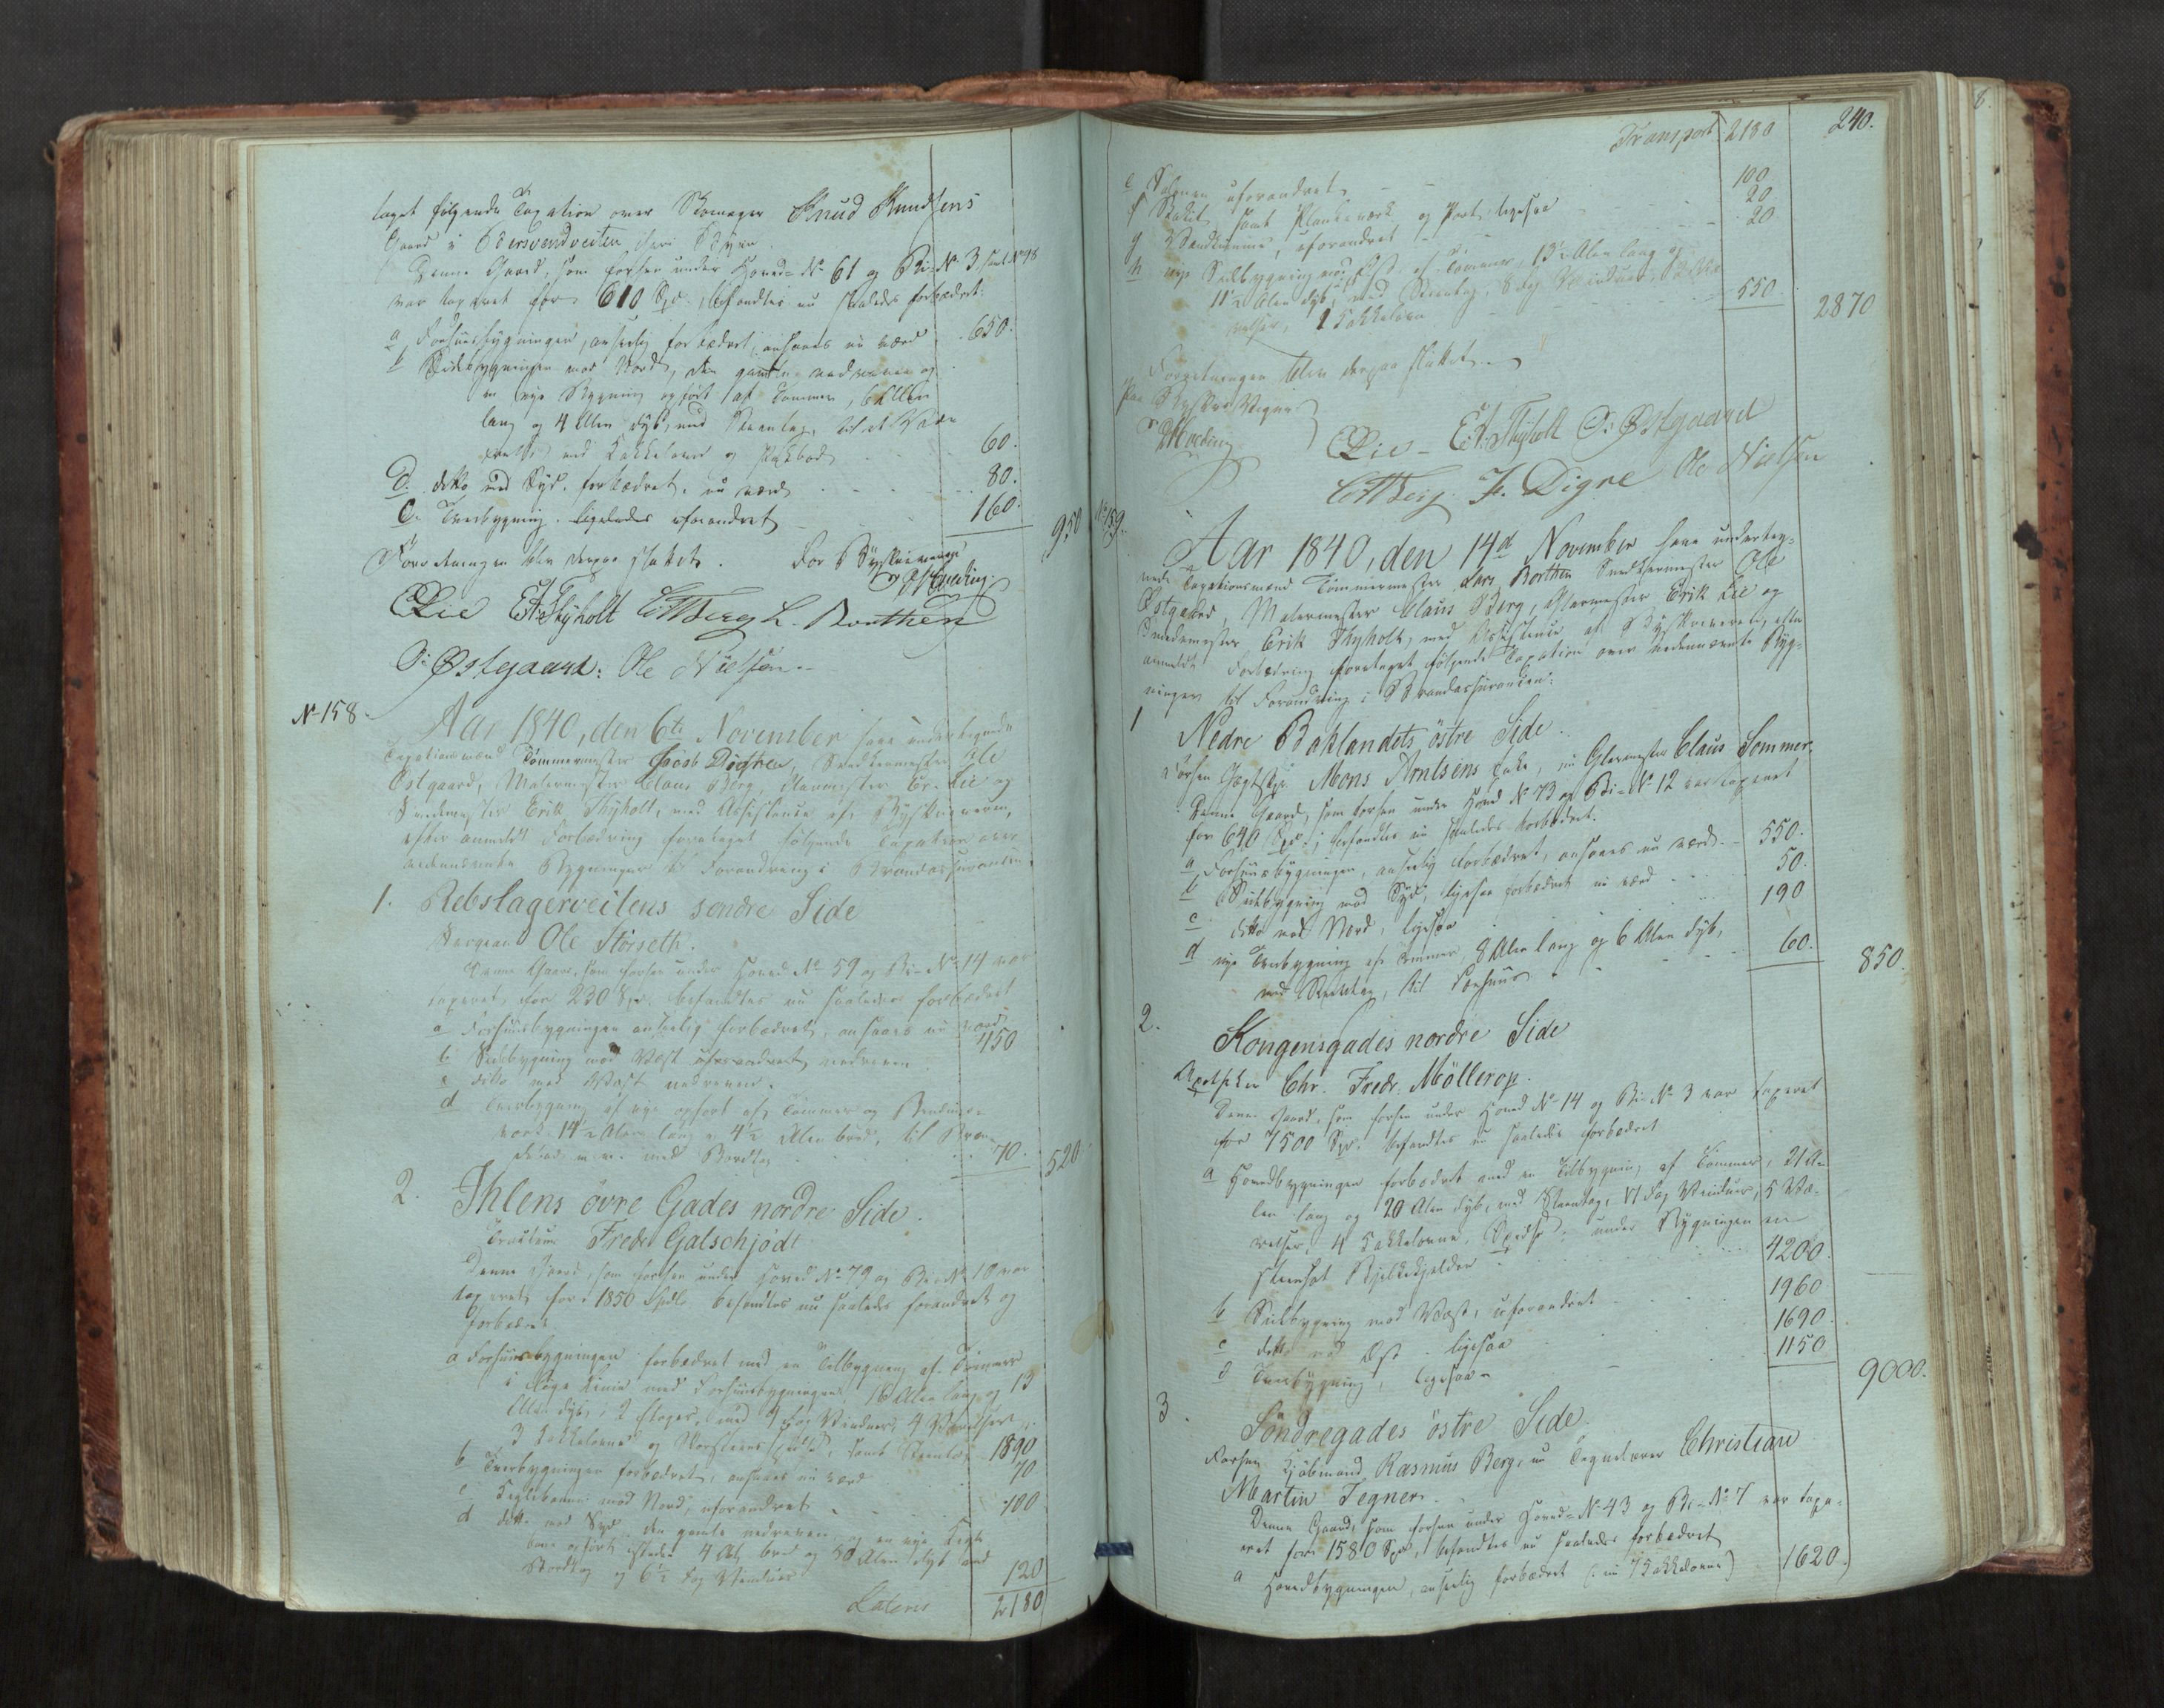 taget følgende Taxation over Skomager Knud Knudsens
Gaard i Odersvendveiten her i Byen.
Denne Gaard, som forhen under Hoved-No 61 og Bi-No 3
var taxeret for 610 Spd., befandtes nu saaledes forbedret:
a Forhuusbygningen, anseelig forbedret, ansaaes nu værd 650.
b Sidebygningen mod Nord, den gamle nedreven og
en nye Bygning opført af Tømmer, 6 Alen
lang og 4 Alen dyb, med Steentag, til et Væ-
relse med Kakkelovn og 60.
d. ditto mod Syd, forbedret, nu værd 80.
c. Tverbygning uforandret 160.
950
Forretningen blev derpaa sluttet. For Byskriveren
Lie E. Thyholt C. M. Berg L. Borthen
O. Østgaard. Ole Nielsen
No 158.
Aar 1840, den 6te November have undertegnede
Taxationsmænd Tømmermester Jacob Digre, Snedkermester Ole
Østgaard, Malermester Claus Berg, Glarmester Er. Lie og
Smedemester Erik Thyholt, med Assistence af Byskriveren,
efter anmeldt Forbedring foretaget følgende Taxation over
nedennævnte Bygninger til Forandring i Brandassurancen:
1. Rebslagerveitens søndre Side
Ole Størseth.
Denne Gaard, som forhen under Hoved No 59 og Bi-No 14 var
taxeret for 230 Spd. befandtes nu saaledes forbedret
a Forhuusbygningen anseelig forbedret, ansaaes nu værd 450
b Sidebygning mod Vest uforandret nedreven
c ditto mod Øst nedreven.
d Tverbygning af nye opført af Tømmer og Bindings-
værk 14½ Alen lang og 4½ Alen bred, til Bræn-
debod m. v. med Bordtag 70.
520
2. Ihlens övre Gades nordre Side.
Fredr Galschjødt
Denne Gaard, som forhen under Hoved No 79 og Bi-No 10 var
taxeret for 1850 Spd. befandtes nu saaledes forandret og
forbedret
a Forhuusbygningen forbedret med en Tilbygning af Tømmer
i lige Linie med Forhuusbygningen, 16 Alen lang og 13
Alen dyb, i 2 Etager, med 9 Fag Vinduer, 4 Værelser,
3 Kakkelovne og Skorsteens samt Steentag 1890
b Tverbygningen forbedret, ansaaes nu værd 70
c Keglebanen mod Nord, uforandret 100
d ditto mod Syd den gamle nedreven, og en nye Kegle-
bane opført istedet 4 Al. bred og 50 Alen dyb med
Bordtag og 6½ Fag Vinduer 120
Lateris 2180
Transport 2180
240.
e uforandret 100
f Stakit samt Plankeværk og Port, ligesaa 20
g uforandret 20
h nye Sidebygning mod Øst, af Tømmer, 13½ Alen lang og
11½ Alen dyb, med Steentag, 8 Fag Vinduer, 2 Væ-
relser, 1 Kakkelovn 550.
2870
Forretningen blev derpaa sluttet.
Paa Byskriverens Vegne
Lie - E. Thyholt O. Østgaard
C. M. Berg. J. Digre Ole Nielsen
No 159.
Aar 1840, den 14d November have underteg-
nede Taxationsmænd Tømmermester Lars Borthen Snedkermester Ole
Østgaard, Malermester Claus Berg, Glarmester Erik Lie og
Smedemester Erik Thyholt, med Assistence af Byskriveren, efter
anmeldt Forbedring foretaget følgende Taxation over nedennævnte Byg-
ninger til Forandring i Brandassurancen:
1 Nedre Baklandets östre Side.
Forhen Mons Arntsens Enke, nu Glarmester Claus Sommer.
Denne Gaard, som forhen under Hoved No 73 og Bi-No 12 var taxeret
for 640 Spd.; befandtes nu saaledes forbedret.
a Forhuusbygningen, anseelig forbedret, ansaaes nu værd 550.
b Sidebygning mod Syd, ligesaa forbedret, nu værd 50.
c ditto mod Nord, ligesaa 190
d nye Tverbygning af Tømmer, 8 Alen lang og 6 Alen dyb,
med Steentag, til Fæhuus 60.
850.
2. Kongensgades nordre Side
Apotheker Chr. Fredr. Möllerop.
Denne Gaard, som forhen under Hoved No 14 og Bi-No 3 var taxeret
for 7500 Spd. befandtes nu saaledes forbedret
a Hovedbygningen forbedret med en Tilbygning af Tømmer, 21 A-
len lang og 20 Alen dyb, med Steentag, 17 Fag Vinduer, 5 Væ-
relser, 4 Kakkelovne, under Bygningen en
Bjelkekjelder 4200.
b Sidebygning mod Vest, uforandret 1960
c ditto mod Øst ligesaa 1690.
d Tverbygning, ligesaa 1150
9000.
3. Söndregades östre Side.
Forhen Kjøbmand Rasmus Berg, nu Tegnelærer Christian
Martin Tegner.
Denne Gaard, som forhen under Hoved-No 43 og Bi-No 7 var taxe-
ret for 1580 Spd, befandtes nu saaledes forbedret
a Hovedbygningen, anseelig forbedret (nu 7 Kakkelovne) 1620.